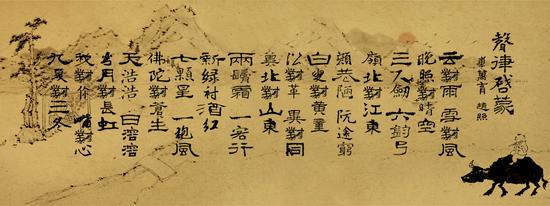 聲律啓蒙
車萬育
云對雨 雪對風
晚照對晴空
三尺劍 六鈞弓
嶺北對江東
顏巷陋 阮途窮
白叟對黃童
沿對革 異對同
冀北對山東
兩鬢霜 一客行
新綠村酒紅
七顆星 一風
佛陀對蒼生
天浩浩 日溶溶
月對長虹
我對你 對心
九夏對三冬